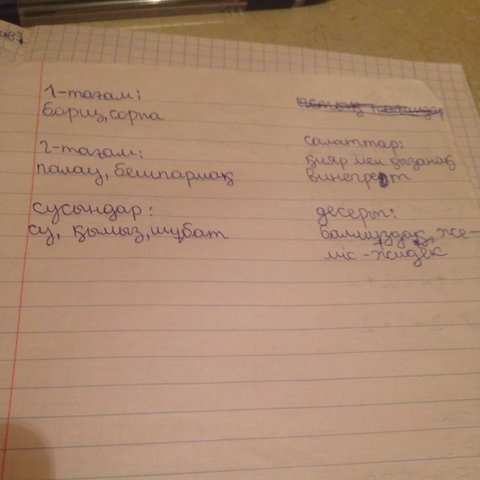 1-тағам:
борщ, сорпа
2-тағам:
палау, бешпармақ
сусындар:
су, қымыз, шұбат
салаттар:
қияр мен қызанақ
винегрет
десерт:
балмұздақ, же-
міс-жидек